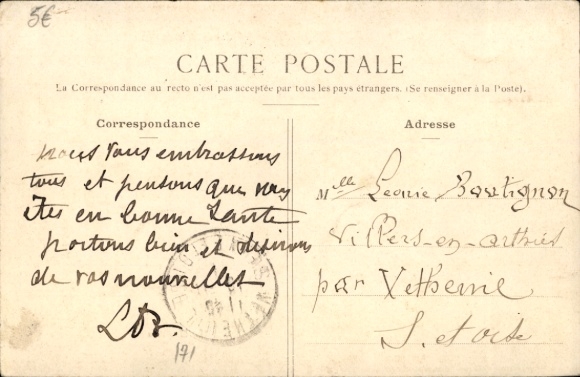 5€
CARTE POSTALE
La Correspondance au recto n'est pas acceptée par tous les pays étrangers. (Se renseigner à la Poste).
Correspondance
nous vous embrassons
tous et pensons que vous
êtes en bonne Sante
portons bien et désirons
de vos nouvelles
171
Adresse
Mlle Leonie Boutignon
Villers-en-arthies
par Vetheuil
S. et oise